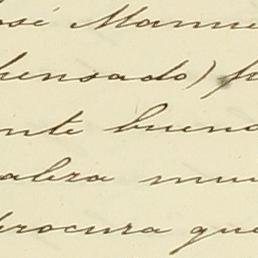 osé Manue
pensado) fu
nte buena
abra mu
procura que